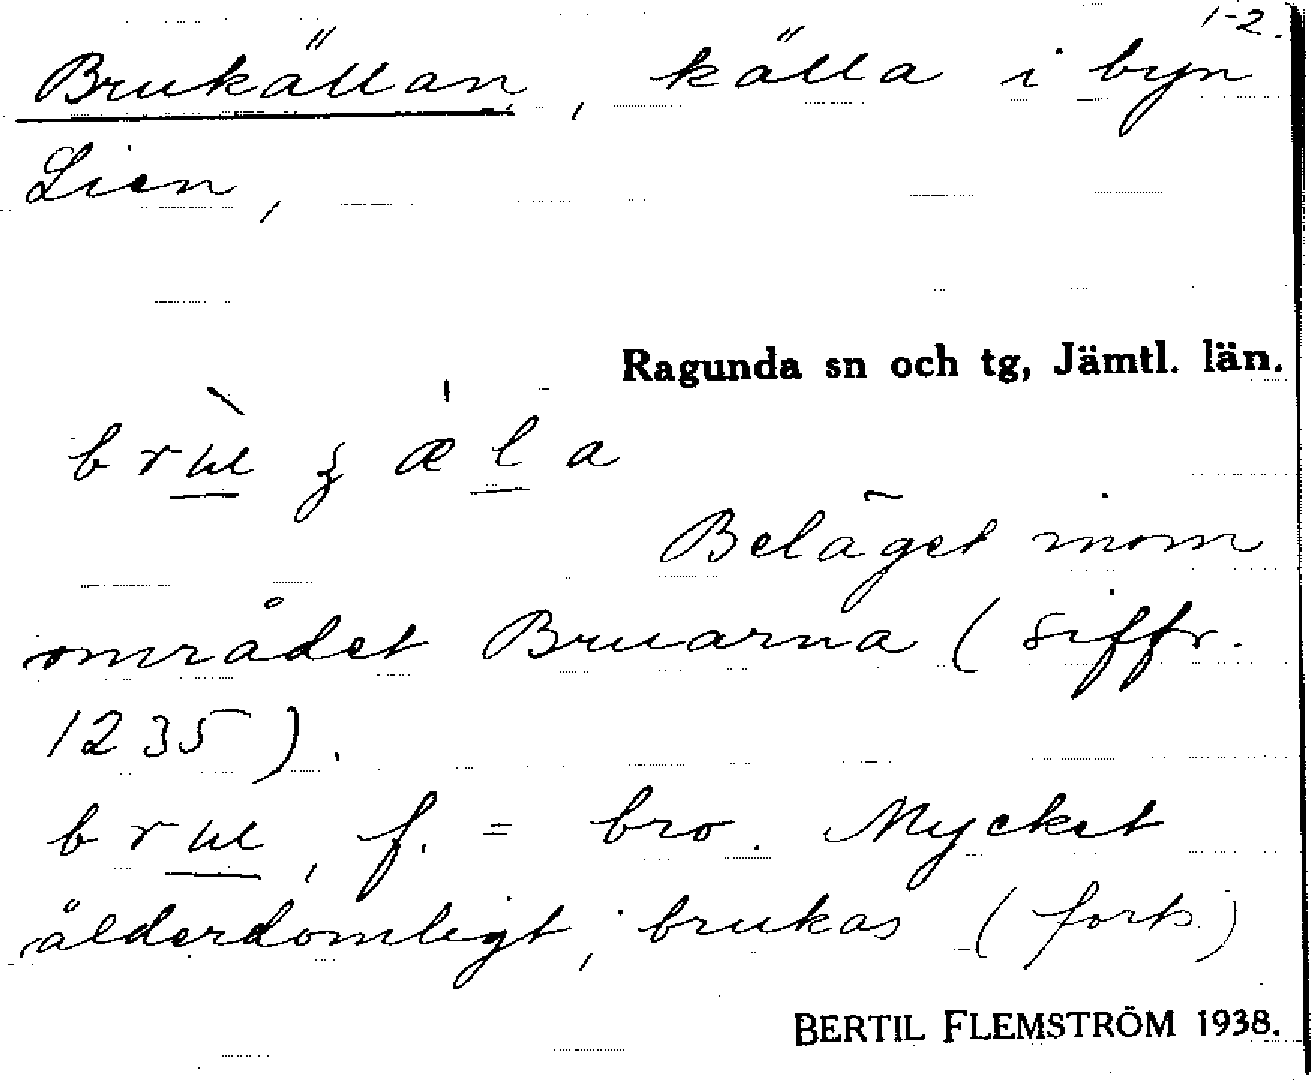 1-2.
Brukällan, källa i byn
Lien,
Ragunda sn och tg, Jämtl. län.
Beläget inom
området Bruarna (siffr.
1235).
f. = bro. Mycket
ålderdomligt, brukas (forts.)
BERTIL FLEMSTRÖM 1938.